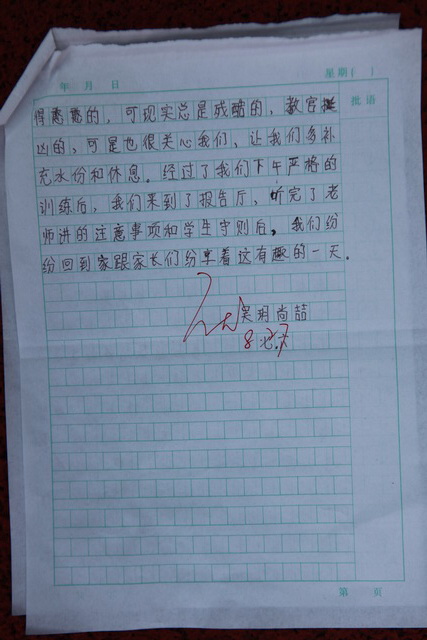 年 月 日
星期( )
批语
得 的,可现实总是残酷的,教官挺
凶的,可是也很关心我们,让我们多补
充水份和休息。经过了我们下午严格的
训练后,我们来到了报告厅,听完了老
师讲的注意事项和学生守则后,我们纷
纷回到家跟家长们纷享着这有趣的一天。
吴玥尚喆
8.27
第 页